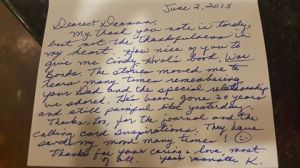 June 2, 2015
Dearest Deanna,
My thank you note is tardy,
but not the thankfulness in
my heart. How nice of you to
give me Cindy Hval's book, War
Bonds. The stories moved me to
tears many times remembering
your Dad and the special relationship
we shared. He's been gone 2 years
and still painful like yesterday.
Thanks, too, for the journal and the
calling card inspirations. They have
saved my many times!
Thanks for your caring & love most
of all. Your K.